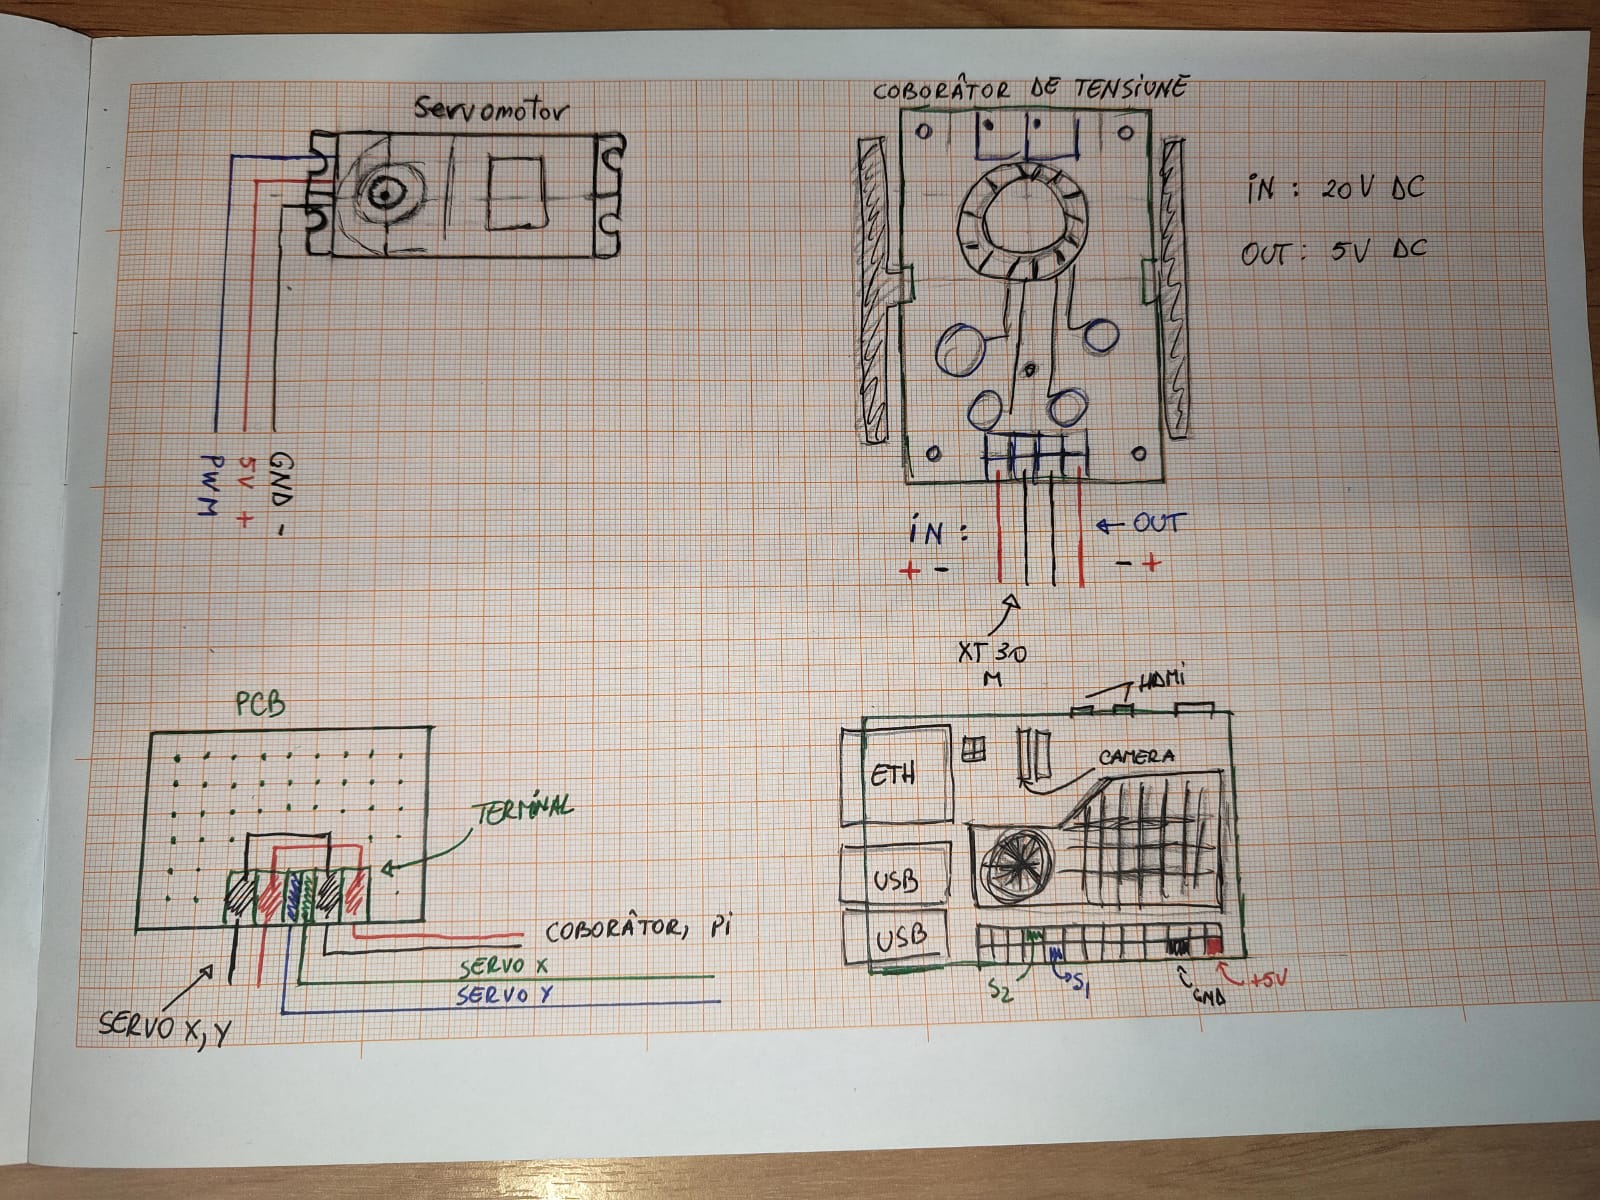 Servomotor
PWM
5V +
GND -
COBORÂTOR DE TENSIUNE
IN : 20V DC
OUT : 5V DC
IN :
+ -
← OUT
- +
XT 30
M
PCB
TERMINAL
COBORÂTOR, Pi
SERVO X
SERVO Y
SERVO X, Y
HDMI
CAMERA
ETH
USB
USB
S2
S1
GND
+5V